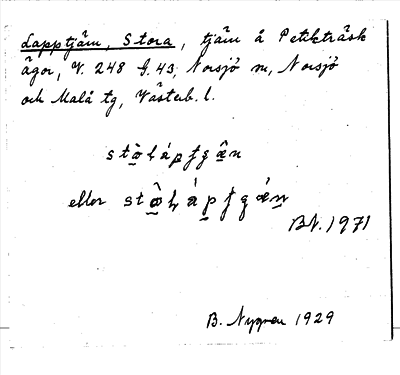 Lapptjärn, Stora, tjärn å Petikträsk
ägor, V. 248 f. 43, Norsjö sn, Norsjö
och Malå tg, Västerb. l.
eller
BN. 1971
B. Nygren 1929